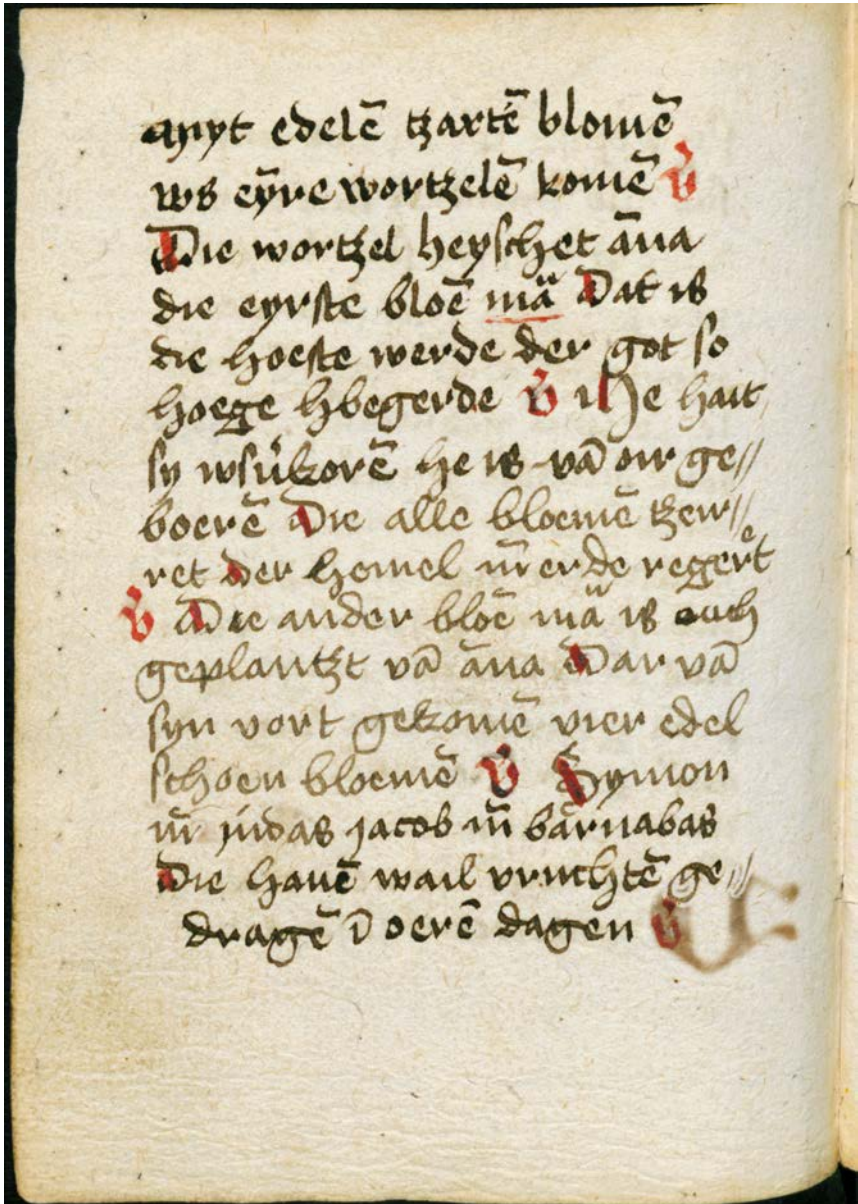 myt edelē tzartē blomē
ws eȳre wortzelē komē v̄
Die wortzel heyschet āna
die eyrste bloē mā Dat is
die hoeste werde der got so
hoege hbegerde v̄ ihe hait
sy wsůkorē he is vā oir ge//
boerē Die alle bloemē tzew//
ret der hemel vn̄ erde regert
v̄ Die ander bloē mā is ouch
geplantzt vā āna Dar vā
syn vort gekomē vier edel
schoen bloemē v̄ Symon
vn̄ judas jacob vn̄ barnabas
Die hauē wail vruchtē ge//
dragē ī oerē dagen v̄